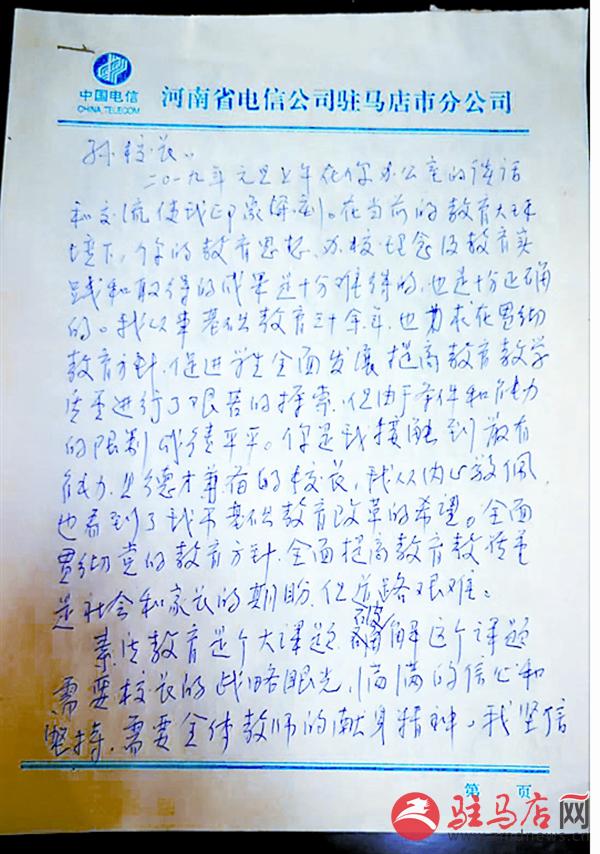 中国电信
CHINA TELECOM
河南省电信公司驻马店市分公司
孙校长：
二〇一九年元旦上午在你办公室的谈话
和交流使我印象深刻。在当前的教育大环
境下，你的教育思想、办校理念及教育实
践和取得的成果是十分难得的，也是十分正确
的。我从事基础教育三十余年，也力求在贯彻
教育方针，促进学生全面发展，提高教育教学
质量进行了艰苦的探索，但由于条件和能力
的限制成绩平平。你是我接触到最有
能力且德才兼备的校长，我从内心敬佩，
也看到了我市基础教育改革的希望。全面
贯彻党的教育方针，全面提高教育教学质量
是社会和家长的期盼，但道路艰难。
素质教育是个大课题，破解这个课题
需要校长的战略眼光，满满的信心和
坚持，需要全体教师的献身精神。我坚信
第 页
驻马店网
zmdnews.cn